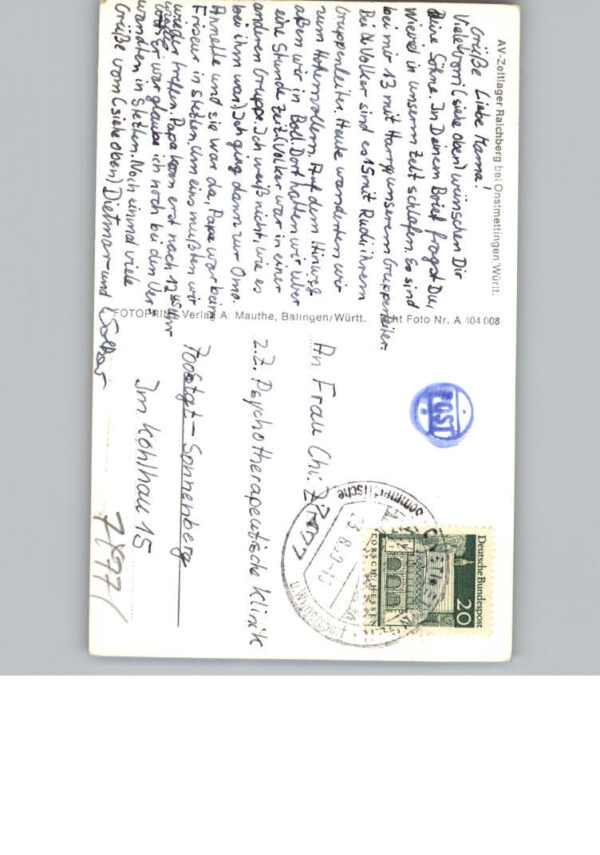 AV-Zeltlager Raichberg bei Onstmettingen Württ.
Liebe Mama!
Viele Grüße vom (siehe oben) wünschen Dir
Deine Söhne. In Deinem Brief fragst Du,
Wieviel in unserem Zelt schlafen. Es sind
bei mir 13 mit Harry, unserem Gruppenleiter.
Bei Volker sind es 15 mit Rudi, ihrem
Gruppenleiter. Heute wanderten wir
zum Hohenzollern. Auf dem Hinweg
aßen wir in Boll. Dort hatten wir über
eine Stunde Zeit (Volker war in einer
anderen Gruppe. Ich weiß nicht, wie es
bei ihm war) Ich ging dann zur Oma.
Annette und sie war da, Papa war beim
Friseur in Stetten. Um eins mußten wir
wieder treffen. Papa kam erst nach 12 45 Uhr
weg. Er war glaube ich noch bei den Ver-
wandten in Stetten. Noch einmal viele
Grüße vom (siehe oben) Dietmar und Volker
FOTOPRINT Verlag A. Mauthe, Balingen/Württ. Echt Foto Nr. A 404 008
POST
Deutsche Bundespost
20
LORSCH/HESSEN
An Frau Chr.
z.Z. Psychotherapeutische Klinik
700 Stgt-Sonnenberg
Im Kohlhau 15